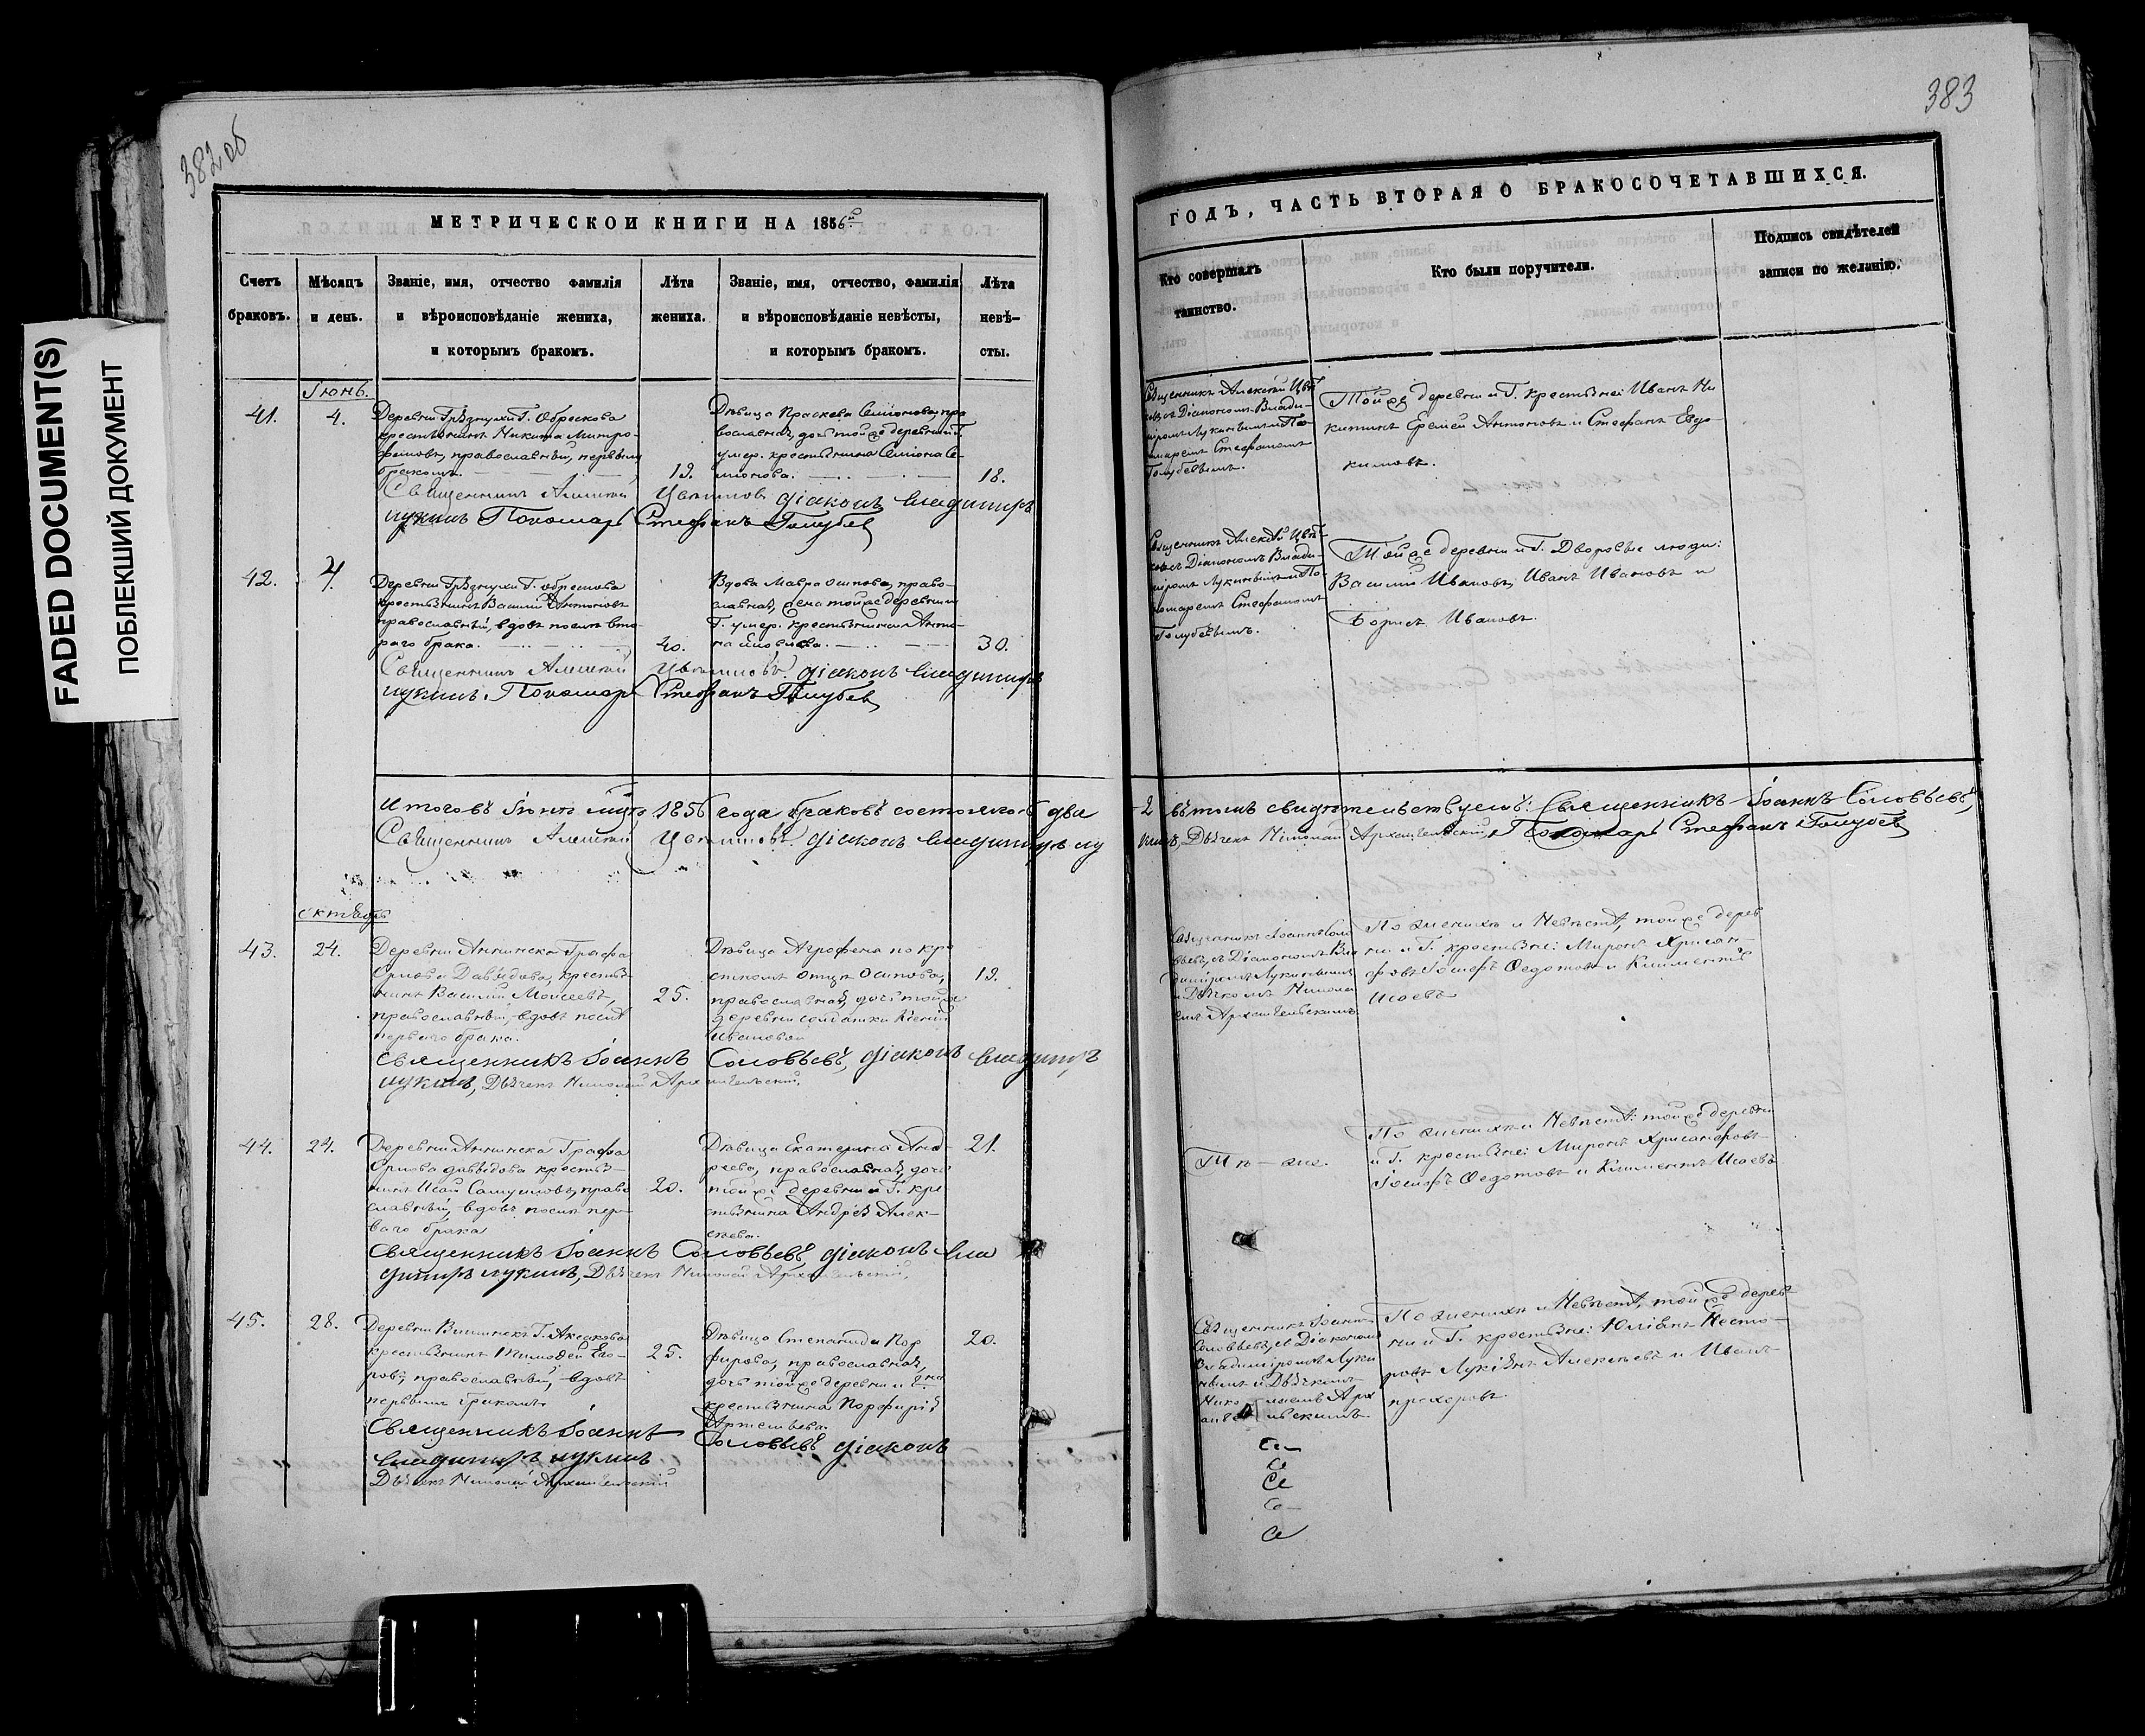 382 об
383
FADED DOCUMENT(S)
ПОБЛЕКШИЙ ДОКУМЕНТ
МЕТРИЧЕСКОИ КНИГИ НА 1856й
Счетъ браковъ.
Мѣсяцъ и день.
Званіе, имя, отчество фамилія
и вѣроисповѣданіе жениха,
и которымъ бракомъ.
Лѣта жениха.
Званіе, имя, отчество, фамилія
и вѣроисповѣданіе невѣсты,
и которымъ бракомъ.
Лѣта невѣ-
сты.
Іюнь.
41.
4.
Деревни Грѣзнухи Г. Обрескова
крестьянинъ Никита Митро-
фановъ, православный, первымъ
бракомъ.
19.
Дѣвица Праскева Семіонова, пра
вославная, дочь тойже деревни и Г.
умер. крестьянина Семіона Се-
міонова.
18.
Священникъ Алексій Цвѣтковъ діаконъ Владимиръ
Лукинъ Пономарь Стефанъ Голубев
42.
4.
Деревни Грѣзнухи Г. Обрескова
крестьянинъ Василій Антоновъ
православный, вдовъ послѣ вто
раго брака.
40.
Вдова Мавра Осипова, право-
славная, жена тойже деревни и
Г. умер. крестьянина
30.
Священникъ Алексій Цвѣтковъ діаконъ Владимиръ
Лукинъ. Пономарь Стефанъ Голубев
Итого въ Іюнѣ м-цѣ 1856 года браковъ состоялось два
Священникъ Алексій Цвѣтковъ діаконъ Владимиръ Лу
октябрь
43.
24.
Деревни Аннинска Графа
Орлова Давыдова, крестья-
нинъ Василій Моисеевъ,
православный, вдовъ послѣ
перваго брака.
25.
Дѣвица Агрофена по кре
стномъ отцѣ Осипова,
православная, дочь тойже
деревни солдатки Ксеніи
Ивановой
19.
Священникъ Іоаннъ Соловьевъ, діаконъ Владимиръ
Лукинъ, Дьячекъ Николай Архангельскій.
44.
24.
Деревни Аннинска Графа
Орлова Давыдова крестья-
нинъ Исай Самуиловъ, право
славный, вдовъ послѣ пер-
ваго брака
20.
Дѣвица Екатерина Анд-
реева, православная, дочь
тойже деревни и Г. кре
стьянина Андрея Алек-
сѣева.
21.
Священникъ Іоаннъ Соловьевъ, діаконъ Вла
димиръ Лукинъ, Дьячекъ Николай Архангельскій.
45.
28.
Г. Аксакова
крестьянинъ Тимофей Его-
ровъ, православный, вдовъ
первымъ бракомъ.
25.
Дѣвица Степанида Пор
фирова, православная,
дочь тойже деревни и Г-на
крестьянина Порфирія
Артемьева.
20.
Священникъ Іоаннъ Соловьевъ діаконъ
Владимиръ Лукинъ
Дьячекъ Николай Архангельскій
ГОДЪ, ЧАСТЬ ВТОРАЯ О БРАКОСОЧЕТАВШИХСЯ.
Кто совершалъ
таинство.
Кто были поручители.
Подпись свидѣтелей
записи по желанію.
Священникъ Алексій Цвѣт
ковъ съ Діакономъ Влади-
миромъ Лукинымъ и По-
номаремъ Стефаномъ
Голубевымъ.
Тойже деревни и Г. крестьяне: Иванъ Ни
китинъ Еремей Антоновъ и Стефанъ Евдо-
кимовъ.
Священникъ Алексій Цвѣт-
ковъ съ Діакономъ Влади-
миромъ Лукинымъ и По-
номаремъ Стефаномъ
Голубевымъ.
Тойже деревни и Г. Дворовые люди:
Василій Ивановъ, Иванъ Ивановъ и
Борисъ Ивановъ.
2 въ томъ свидѣтельствуемъ: Священникъ Іоаннъ Соловьевъ,
кинъ, Дьячекъ Николай Архангельскій, Пономарь Стефанъ Голубев
Священникъ Іоаннъ Соло
вьевъ, съ Діакономъ Вла
димиромъ Лукинымъ
и Дьячкомъ Никола
емъ Архангельскимъ
По женихѣ и Невѣстѣ, тойже дерев
ни и Г. крестьяне: Миронъ Хрисан-
фовъ Іосифъ Федотовъ и Климентій
Исаевъ
Тѣ-же.
По женихѣ и Невѣстѣ: тойже деревни
и Г. крестьяне: Миронъ Хрисанфовъ
Іосифъ Федотовъ и Климентъ Исаевъ
Священникъ Іоаннъ
Соловьевъ, съ Діакономъ
Владимиромъ Луки
нымъ и Дьячкомъ
Николаемъ Арх
ангельскимъ.
По женихѣ и Невѣстѣ, тойже дерев
ни и Г. крестьяне: Юліанъ Несто-
ровъ Лукіянъ Алексѣевъ и Иванъ
Прохоровъ.